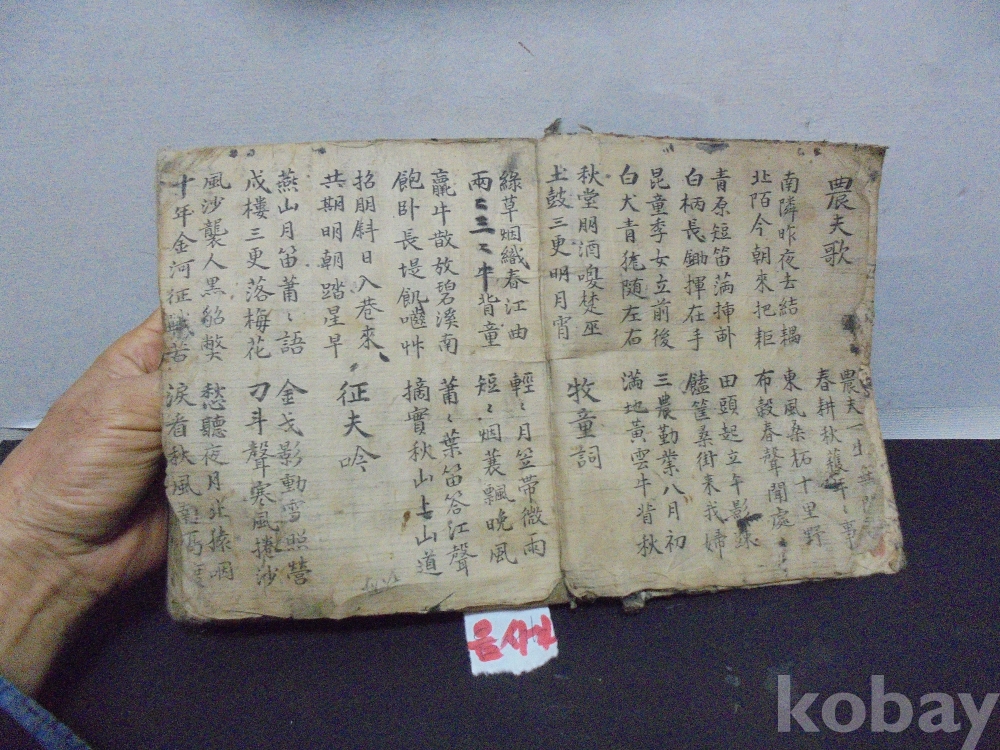 農夫歌
農夫一生
春耕秋穫年〻事
南隣昨夜去結耦
東風桑柘十里野
北陌今朝來把耟
布穀春聲聞處
青原短笛滿揷
田頭起立午影
白柄長鋤揮在手
饁筐桑街来我婦
昆童季女立前後
三農勤業八月初
白犬青尨随左右
滿地黃雲牛背秋
秋堂朋酒嗳楚巫
土鼓三更明月宵
牧童詞
綠草烟織春江曲
輕〻月笠帶微雨
兩〻三〻牛背童
短〻烟蓑飄晩風
羸牛散放碧溪南
蕭〻葉笛答江聲
飽卧長堤飢嚙艸
摘實秋山上山道
招朋斜日入巷來
共期明朝踏星早
征夫吟
燕山月笛蕭〻語
金戈影動雪照營
戍樓三更落梅花
刁斗聲寒風捲沙
風沙襲人黑貂獘
愁聽夜月北猿咽
十年金河征戰苦
淚看秋風南
kobay